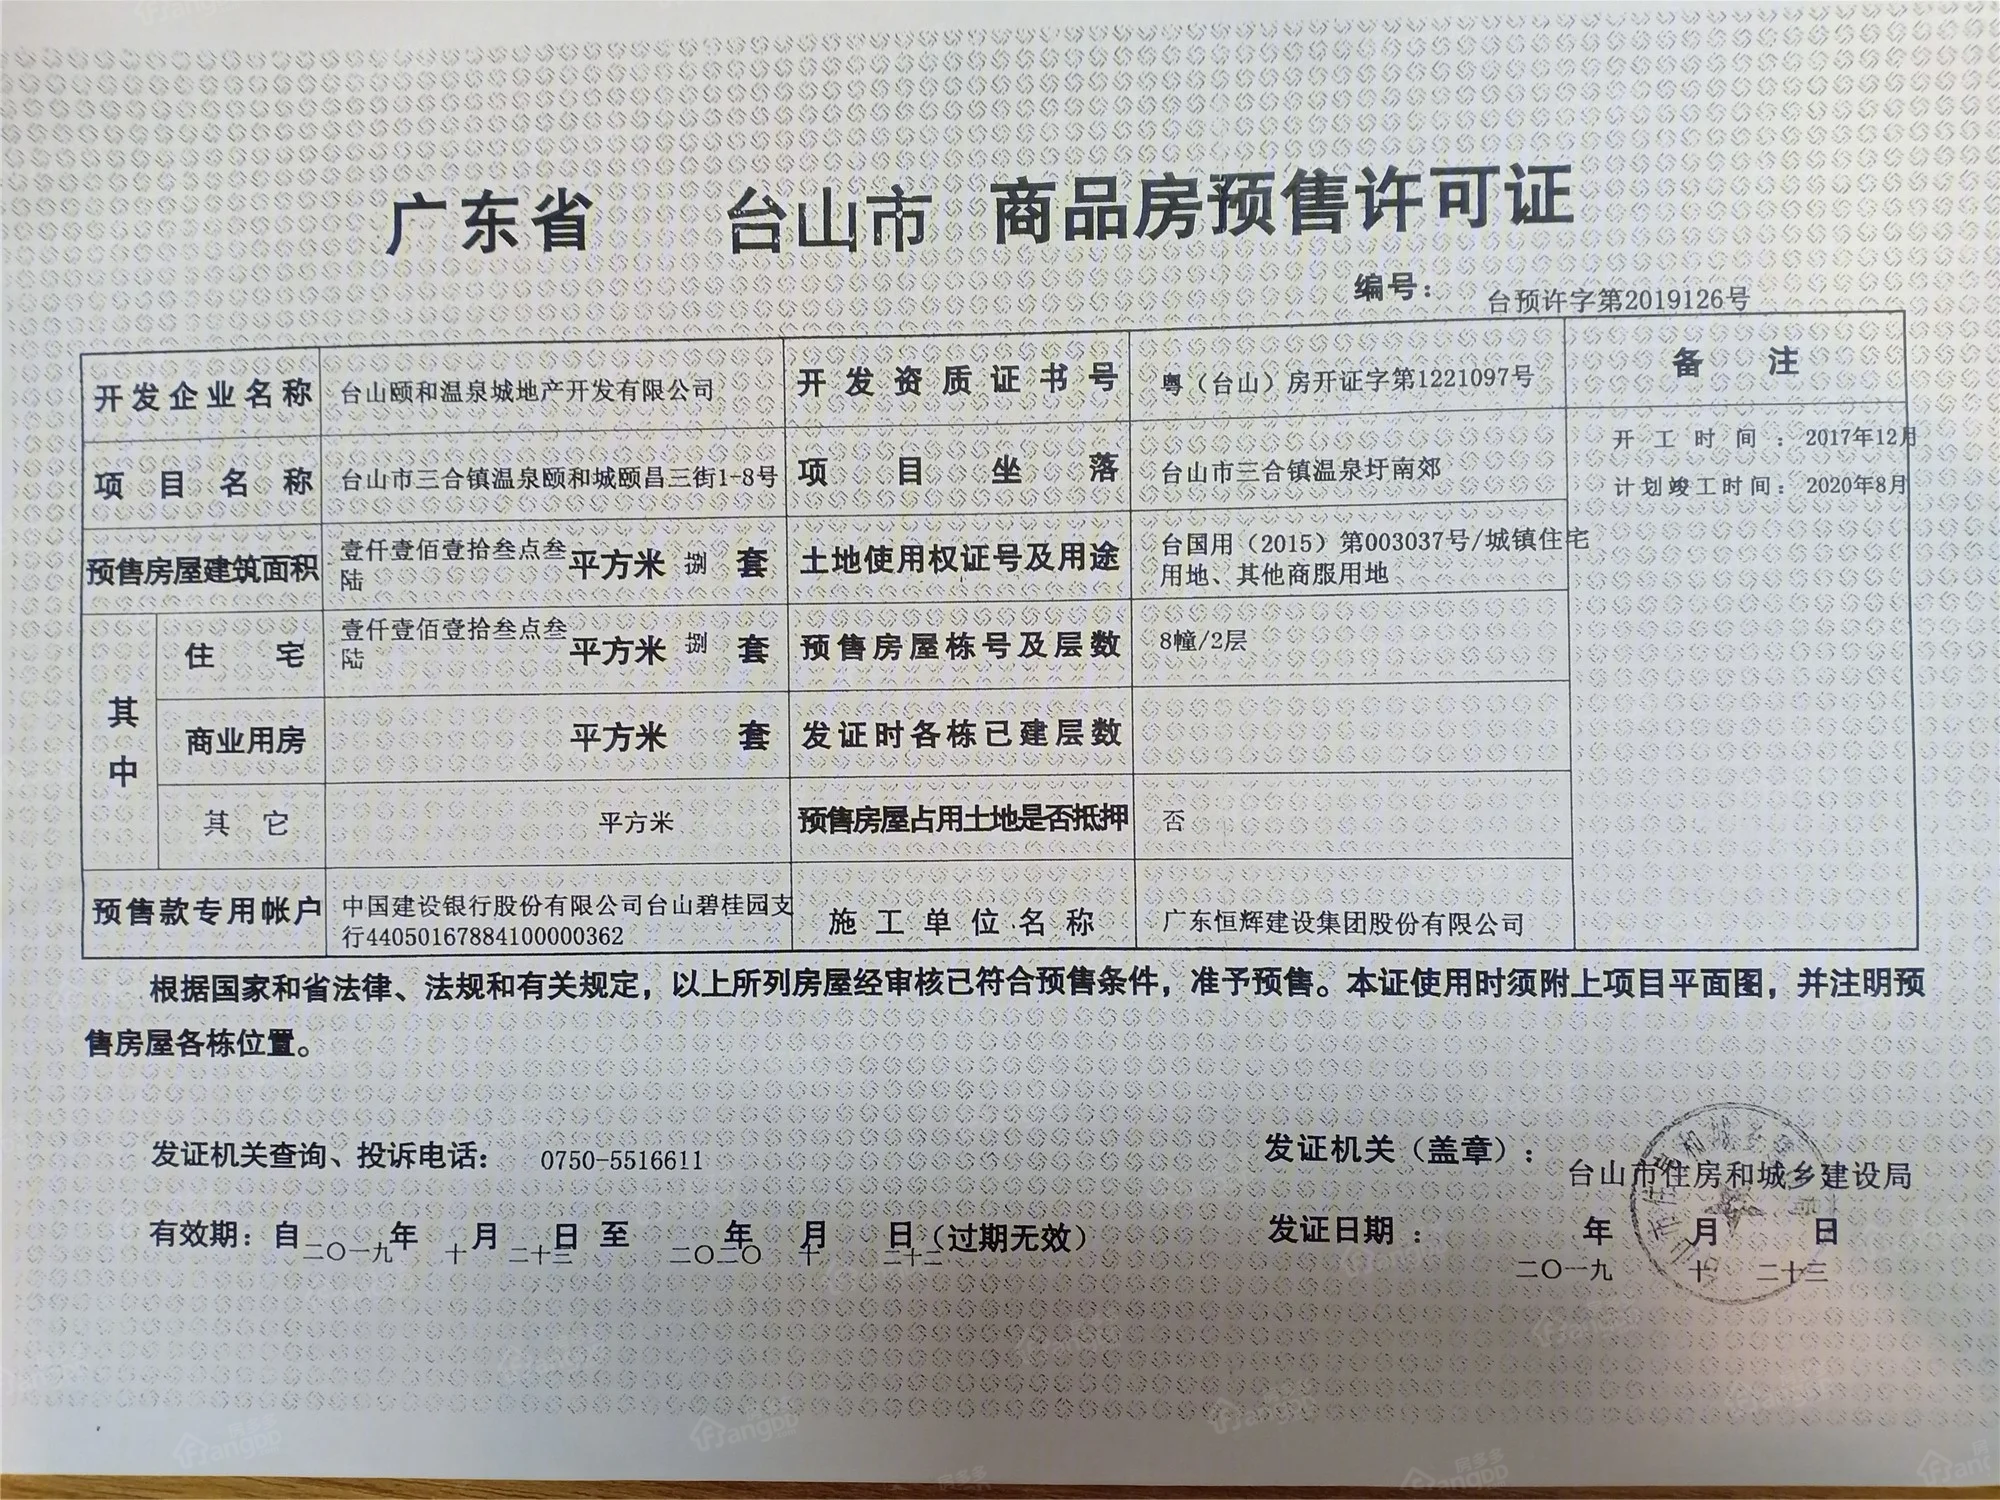 广东省 台山市 商品房预售许可证
编号： 台预许字第2019126号
开发企业名称 台山颐和温泉城地产开发有限公司 开发资质证书号 粤（台山）房开证字第1221097号 备注
项目名称 台山市三合镇温泉颐和城颐昌三街1-8号 项目坐落 台山市三合镇温泉圩南郊
开工时间：2017年12月
计划竣工时间：2020年8月
预售房屋建筑面积 壹仟壹佰壹拾叁点叁
陆 平方米 捌 套 土地使用权证号及用途 台国用（2015）第003037号/城镇住宅
用地、其他商服用地
其中
住宅 壹仟壹佰壹拾叁点叁
陆 平方米 捌 套 预售房屋栋号及层数 8幢/2层
商业用房 平方米 套 发证时各栋已建层数
其它 平方米 预售房屋占用土地是否抵押 否
预售款专用帐户 中国建设银行股份有限公司台山碧桂园支
行44050167884100000362 施工单位名称 广东恒辉建设集团股份有限公司
根据国家和省法律、法规和有关规定，以上所列房屋经审核已符合预售条件，准予预售。本证使用时须附上项目平面图，并注明预
售房屋各栋位置。
发证机关查询、投诉电话： 0750-5516611 发证机关（盖章）：
台山市住房和城乡建设局
有效期：自二〇一九年十月二十三日至二〇二〇年十月二十二日（过期无效） 发证日期：二〇一九年十月二十三日